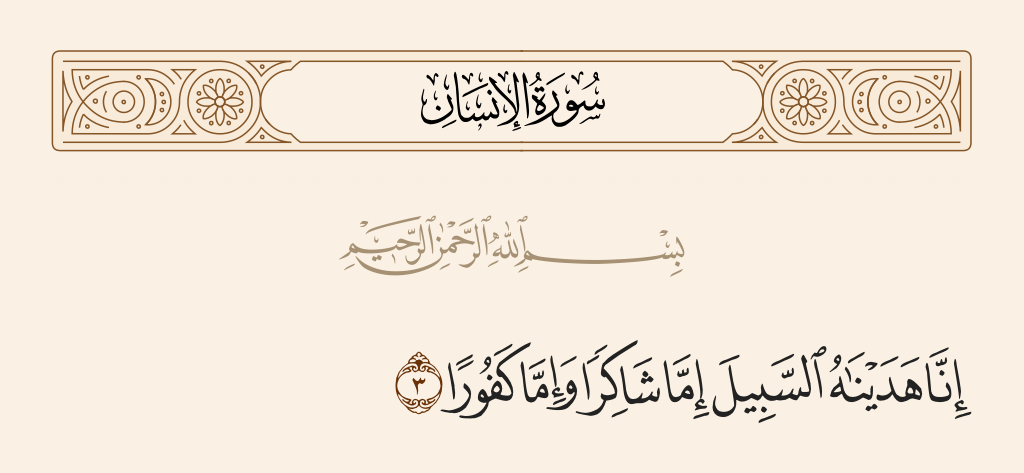 سُورَةُ الإِنسَانِ
بِسْمِ ٱللَّهِ ٱلرَّحْمَٰنِ ٱلرَّحِيمِ
إِنَّا هَدَيْنَٰهُ ٱلسَّبِيلَ إِمَّا شَاكِرًا وَإِمَّا كَفُورًا ٣